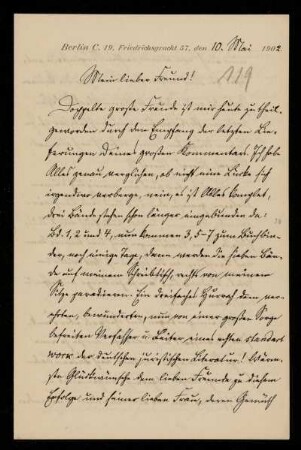 Berlin C. 19, Friedrichsgracht 57, den 10. Mai 1902
119
Mein lieber Freund!
Doppelte große Freude ist mir heute zu theil
geworden durch den Empfang der letzten Lie-
ferungen Deines großen Kommentars. Ich habe
Alles genau verglichen, ob nicht eine Lücke sich
irgendwo verberge, nein, es ist Alles komplet,
drei Bände stehen schon länger eingebunden da:
Bd. 1, 2 und 4, nun kommen 3, 5-7 zum Buchbin-
der, noch einige Tage, dann werden die sieben Bän-
de auf meinem Schreibtisch, rechts von meinem
Sitze paradieren. Ein dreifaches Hurrah dem ver-
ehrten, bewunderten, nun von einer großen Sorge
befreiten Verfasser und Leiter eines echten standard
work der deutschen juristischen Literatur! Wärm-
ste Glückwünsche dem lieben Freunde zu diesem
Erfolge und seiner lieben Frau, deren Gemüth